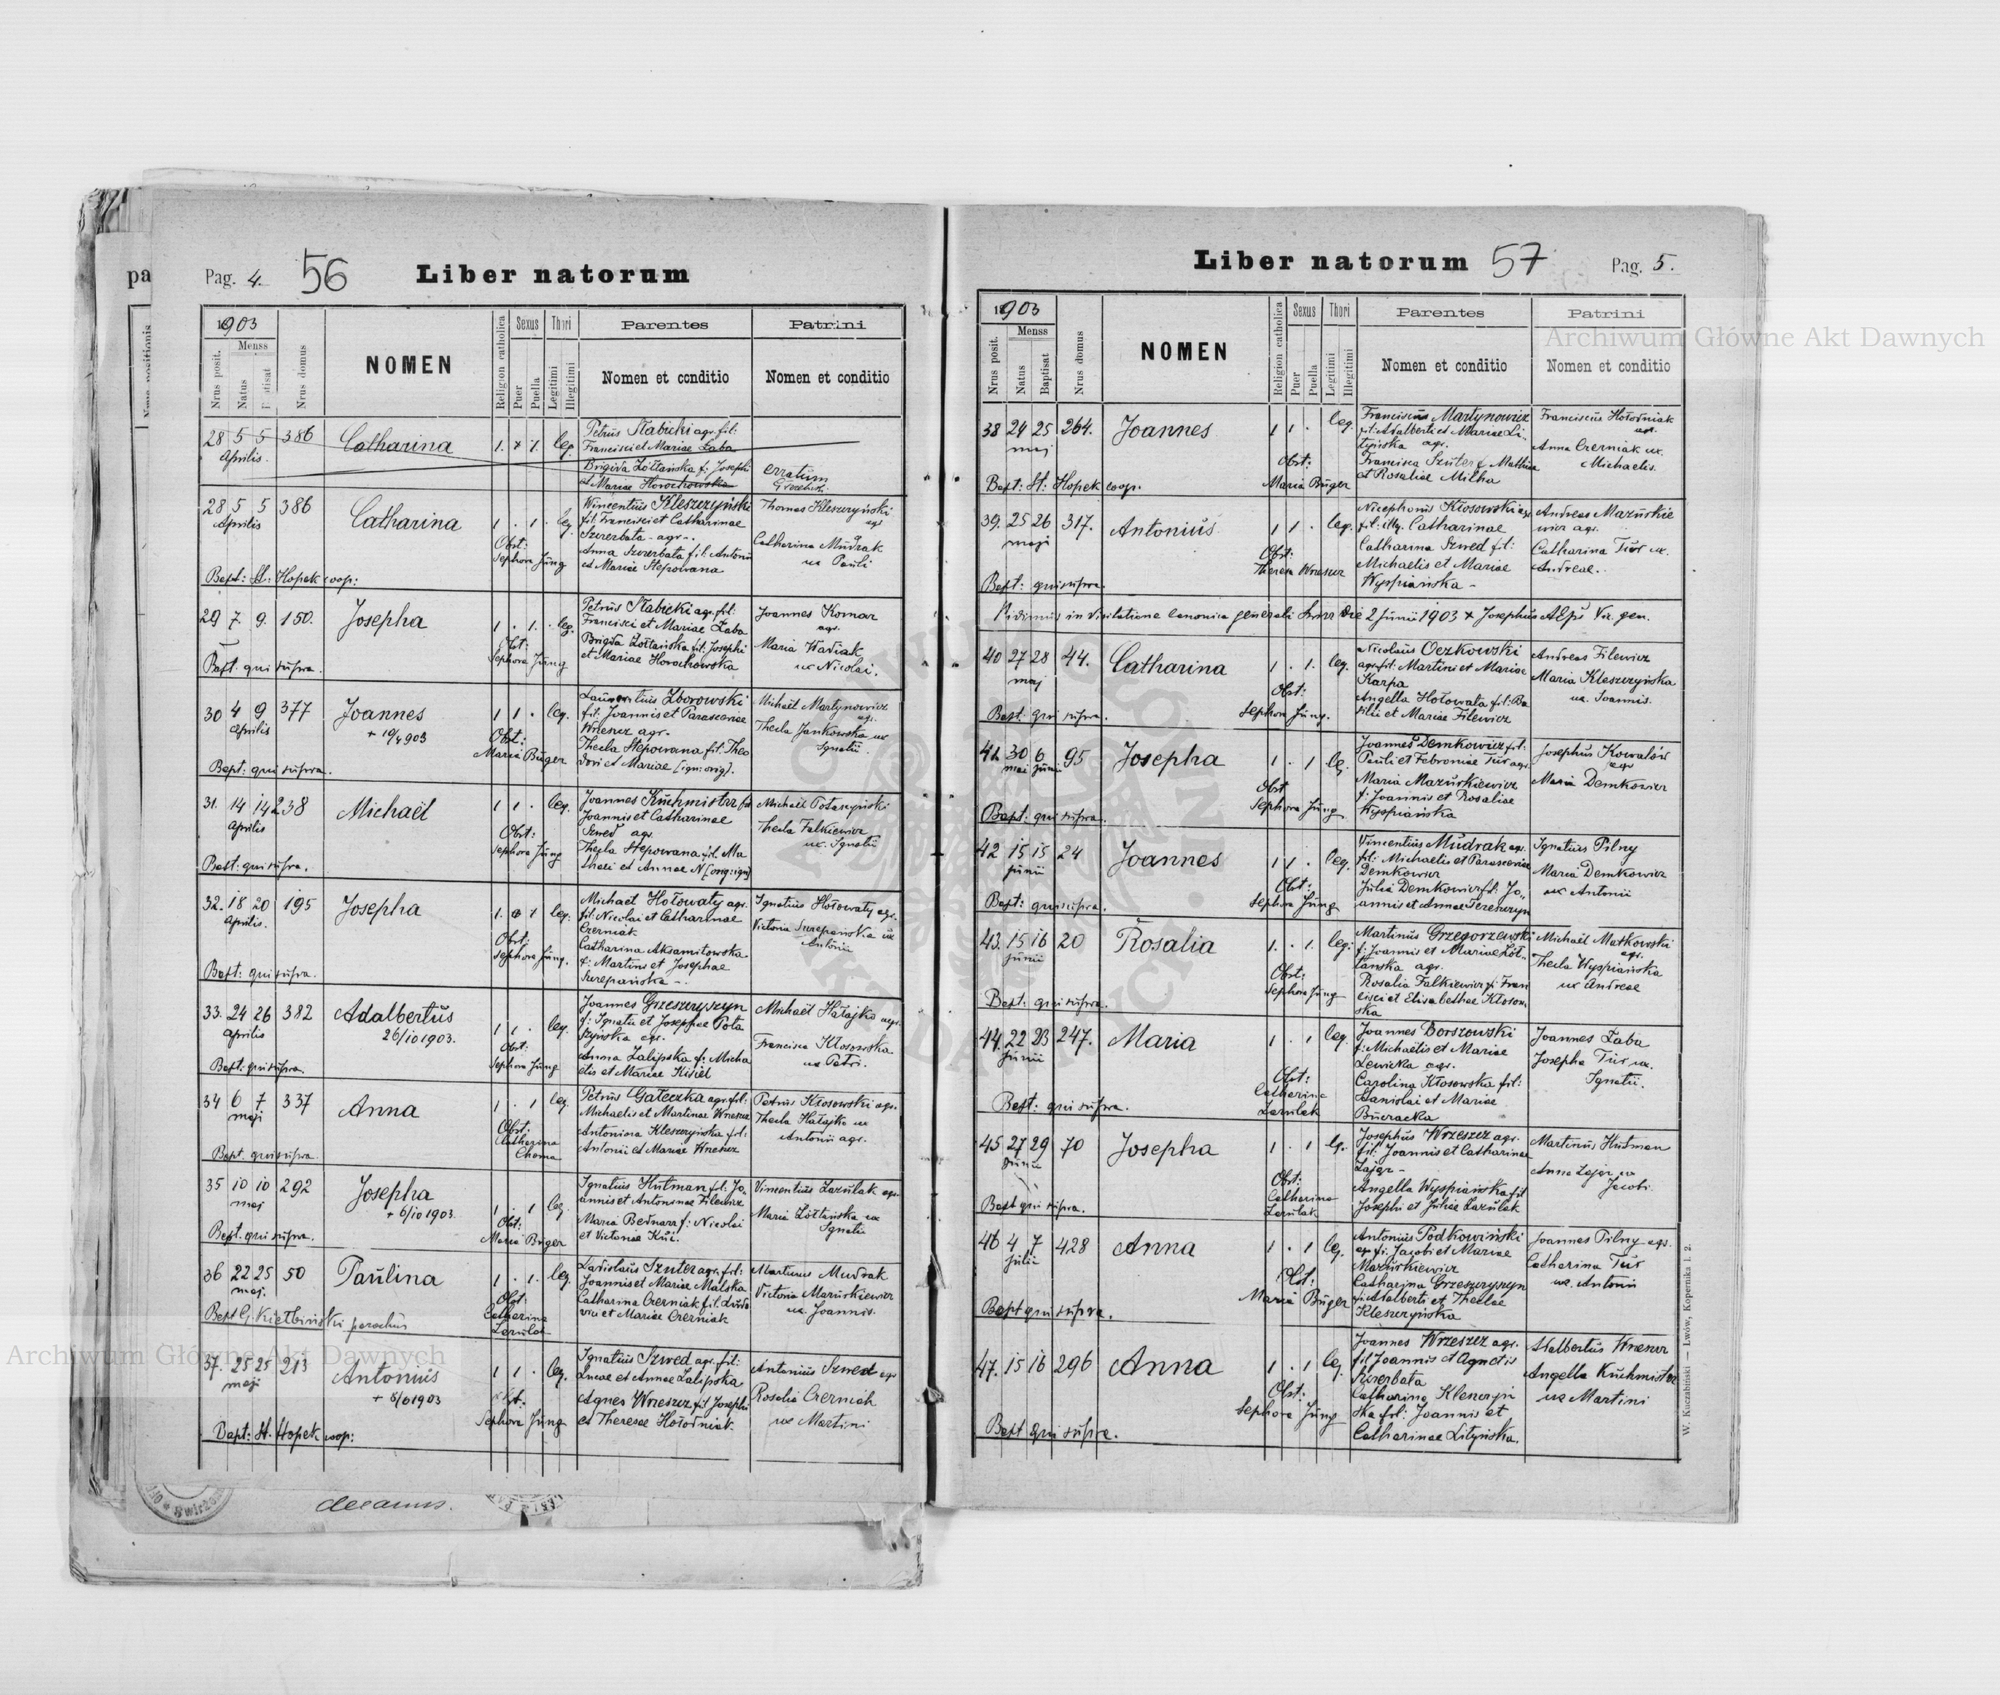 Pag. 4. 56 Liber natorum
1903
Menss
Nrus posit.
Natus
Nrus domus
NOMEN
Religion catholica
Sexus
Puer
Puella
Thori
Legitimi
Illegitimi
Parentes
Nomen et conditio
Patrini
Nomen et conditio
28 5 5 386 Catharina 1. 1. leg.
Aprilis.
Petrus Stabicki agr. fil:
Francisci et Mariae Żaba
Brigida Żółtańska f: Josephi
et Mariae Horochowska
erratum
28 5 5 386 Catharina 1 . 1 . leg.
Aprilis
Obst:
Sephora Jüng
Wincentius Kleszczyński
fil. Francisci et Catharinae
Szczerbata - agr -.
Anna Szczerbata fil. Antonii
et Mariae Stepowana
Thomas Kleszczyński
agr
Catharina Mudrak
ux Pauli
Bapt: St. Hopek coop:
29 7. 9. 150. Josepha 1 . 1. . leg.
Obst:
Sephora Jüng
Petrus Stabicki agr. fil:
Francisci et Mariae Żaba
Brigida Żółtańska fil. Josephi
et Mariae Horochowska
Joannes Komar
agr.
Maria Waviak
ux Nicolai.
Bapt. qui supra.
30 4 9 377 Joannes 1 1 . leg.
Aprilis
+ 19/4 903
Obst:
Maria Büger
Laurentius Zborowski
fil. Joannis et Parasceviae
Wrzeszcz agr.
Thecla Stepowana fil. Theo
dori et Mariae [ign: orig].
Michaël Martynowicz
agr.
Thecla Jankowska ux
Ignatii.
Bapt: qui supra.
31. 14 14 238 Michaël 1 1 . leg.
Aprilis
Obst:
Sephora Jüng
Joannes Kuchmistrz fil
Joannis et Catharinae
Szwed agr.
Thecla Stepowana fil. Ma
thaei et Annae N [orig: ign]
Michaël Potaszyński
Thecla Falkiewicz
ux. Ignatii
Bapt: qui supra.
32. 18 20 195 Josepha 1. 1 leg.
Aprilis.
Obst:
Sephora Jüng.
Michaël Hołowaty agr.
fil. Nicolai et Catharinae
Czerniak
Catharina Aksamitowska
f: Martini et Josephae
Szczepańska -.
Ignatius Hołowaty agr.
Victoria Szczepańska ux
Antonii
Bapt: qui supra.
33. 24 26 382 Adalbertus 1 1 . leg.
Aprilis
26/10 1903.
Obst:
Sephora Jüng
Joannes Grzeszczyszyn
f: Ignatii et Josephae Pota
szyńska agr.
Anna Zalipska f: Micha
elis et Mariae Kisiel
Michaël Hałajko agr.
Francisca Kłosowska
ux Petri.
Bapt: qui supra.
34 6 7 337 Anna 1 . 1 leg.
maji
Obst:
Catharina
Choma
Petrus Gałeczka agr. fil:
Michaelis et Martinae Wrzeszcz
Antonina Kleszczyńska fil:
Antonii et Mariae Wrzeszcz
Petrus Kłosowski agr.
Thecla Hałajko ux
Antonii agr.
Bapt. qui supra.
35 10 10 292 Josepha 1 . 1 leg.
maj
+ 6/10 1903.
Obst:
Maria Büger
Ignatius Hutman fil. Jo„
annis et Antoninae Filewicz
Maria Bednarz f: Nicolai
et Victoriae Kuś.
Vincentius Lazulak agr.
Maria Żółtańska ux
Ignatii
Bapt. qui supra.
36 22 25 50 Paulina 1 . 1. leg.
maj.
Obst:
Catharina
Lazulak
Ladislaus Szuter agr. fil:
Joannis et Mariae Malska
Catharina Czerniak fil. Ludo
vici et Mariae Czerniak
Martinus Mudrak
Victoria Mazurkiewicz
ux. Joannis.
Bapt G. Kiełbiński parochus
37. 25 25 213 Antonius 1 1 . leg.
maji
+ 8/6 1903
Obst.
Sephora Jüng
Ignatius Szwed agr. fil:
Lucae et Annae Zalipska
Agnes Wrzeszcz fil Josephi
et Theresae Hołodniak.
Antonius Szwed agr
Rosalia Czerniak
ux Martini
Bapt: St. Hopek coop:
decanus.
Liber natorum 57 Pag. 5.
1903
Menss
Nrus posit.
Natus
Baptisat
Nrus domus
NOMEN
Religion catholica
Sexus
Puer
Puella
Thori
Legitimi
Illegitimi
Parentes
Nomen et conditio
Patrini
Nomen et conditio
38 24 25 264. Joannes 1 1 . leg.
maj
Obst:
Maria Büger
Franciscus Martynowicz
fil: Adalberti et Mariae Li-
tyńska agr.
Francisca Szuter f. Mathiae
et Rosaliae Milka
Franciscus Hołodniak
agr.
Anna Czerniak ux.
Michaelis.
Bapt: St: Hopek coop.
39. 25 26 317. Antonius 1 1 . leg.
maji
Obst:
Theresa Wrzeszcz
Nicephorus Kłosowski agr
fil: illg. Catharinae
Catharina Szwed fil:
Michaelis et Mariae
Wyspiańska -
Andreas Mazurkie
wicz agr.
Catharina Tur ux.
Andreae.
Bapt: qui supra.
Vidimus in Visitatione canonica generali hac die 2 Junii 1903 + Josephus Abps Vic. gen.
40 27 28 44. Catharina 1 . 1. leg.
maj
Obst:
Sephora Jüng.
Nicolaus Oczkowski
agr. fil: Martini et Mariae
Karpa
Angella Hołowata fil. Ba
silii et Mariae Filewicz
Andreas Filewicz
Maria Kleszczyńska
ux. Joannis.
Bapt. qui supra.
41. 30 6 95 Josepha 1 . 1 leg.
maj Junii
Obst
Sephora Jüng
Joannes Demkowicz fil:
Pauli et Febroniae Tur agr.
Maria Mazurkiewicz
f: Joannis et Rosaliae
Wyspiańska
Josephus Kowalów
agr
Maria Demkowicz
Bapt: qui supra.
42 15 15 24 Joannes 1 1 . leg.
Junii
Obst:
Sephora Jüng
Vincentius Mudrak agr.
fil: Michaelis et Parasceviae
Demkowicz
Julia Demkowicz fil: Jo„
annis et Annae Tereszczyn
Ignatius Pilny
Maria Demkowicz
ux Antonii
Bapt: qui supra.
43. 15 16 20 Rosalia 1 . 1. leg:
Junii
Obst:
Sephora Jüng
Martinus Grzegorzewski
f: Joannis et Mariae Żół-
tańska agr.
Rosalia Falkiewicz f: Fran
cisci et Elisabethae Kłosow
ska
Michaël Matkowski
agr.
Thecla Wyspiańska
ux Andreae
Bapt: qui supra.
44. 22 23 247. Maria 1 . 1 leg.
Junii
Obst:
Catharina
Lazulak
Joannes Borszowski
f: Michaelis et Mariae
Lewicka agr.
Carolina Kłosowska fil:
Stanislai et Mariae
Bucracka
Joannes Żaba
Josepha Tur ux.
Ignatii.
Bapt: qui supra.
45 27 29 70 Josepha 1 . 1 leg.
Junii
Obst:
Catharina
Lazulak
Josephus Wrzeszcz agr.
fil: Joannis et Catharinae
Lajzr -
Angella Wyspiańska fil
Josephi et Juliae Lazulak
Martinus Hutman
Anna Lajzr ux
Jacobi.
Bapt qui supra.
46 4 7 428 Anna 1 . 1 leg.
Julii
Obst:
Maria Büger
Antonius Podkowiński
agr. f: Jacobi et Mariae
Mazurkiewicz
Catharina Grzeszczyszyn
f: Adalberti et Theclae
Kleszczyńska
Joannes Pilny agr.
Catharina Tur
ux. Antonii
Bapt qui supra.
47. 15 16 296 Anna 1 . 1 leg
Obst:
Sephora Jüng
Joannes Wrzeszcz agr.
fil Joannis et Agnetis
Szczerbata
Catharina Kleszczyń
ska fil: Joannis et
Catharinae Lityńska.
Adalbertus Wrzeszcz
Angella Kuchmistrz
ux Martini
Bapt qui supra.
W. Kuczabiński — Lwów, Kopernika l. 2.
Archiwum Główne Akt Dawnych
Archiwum Główne Akt Dawnych